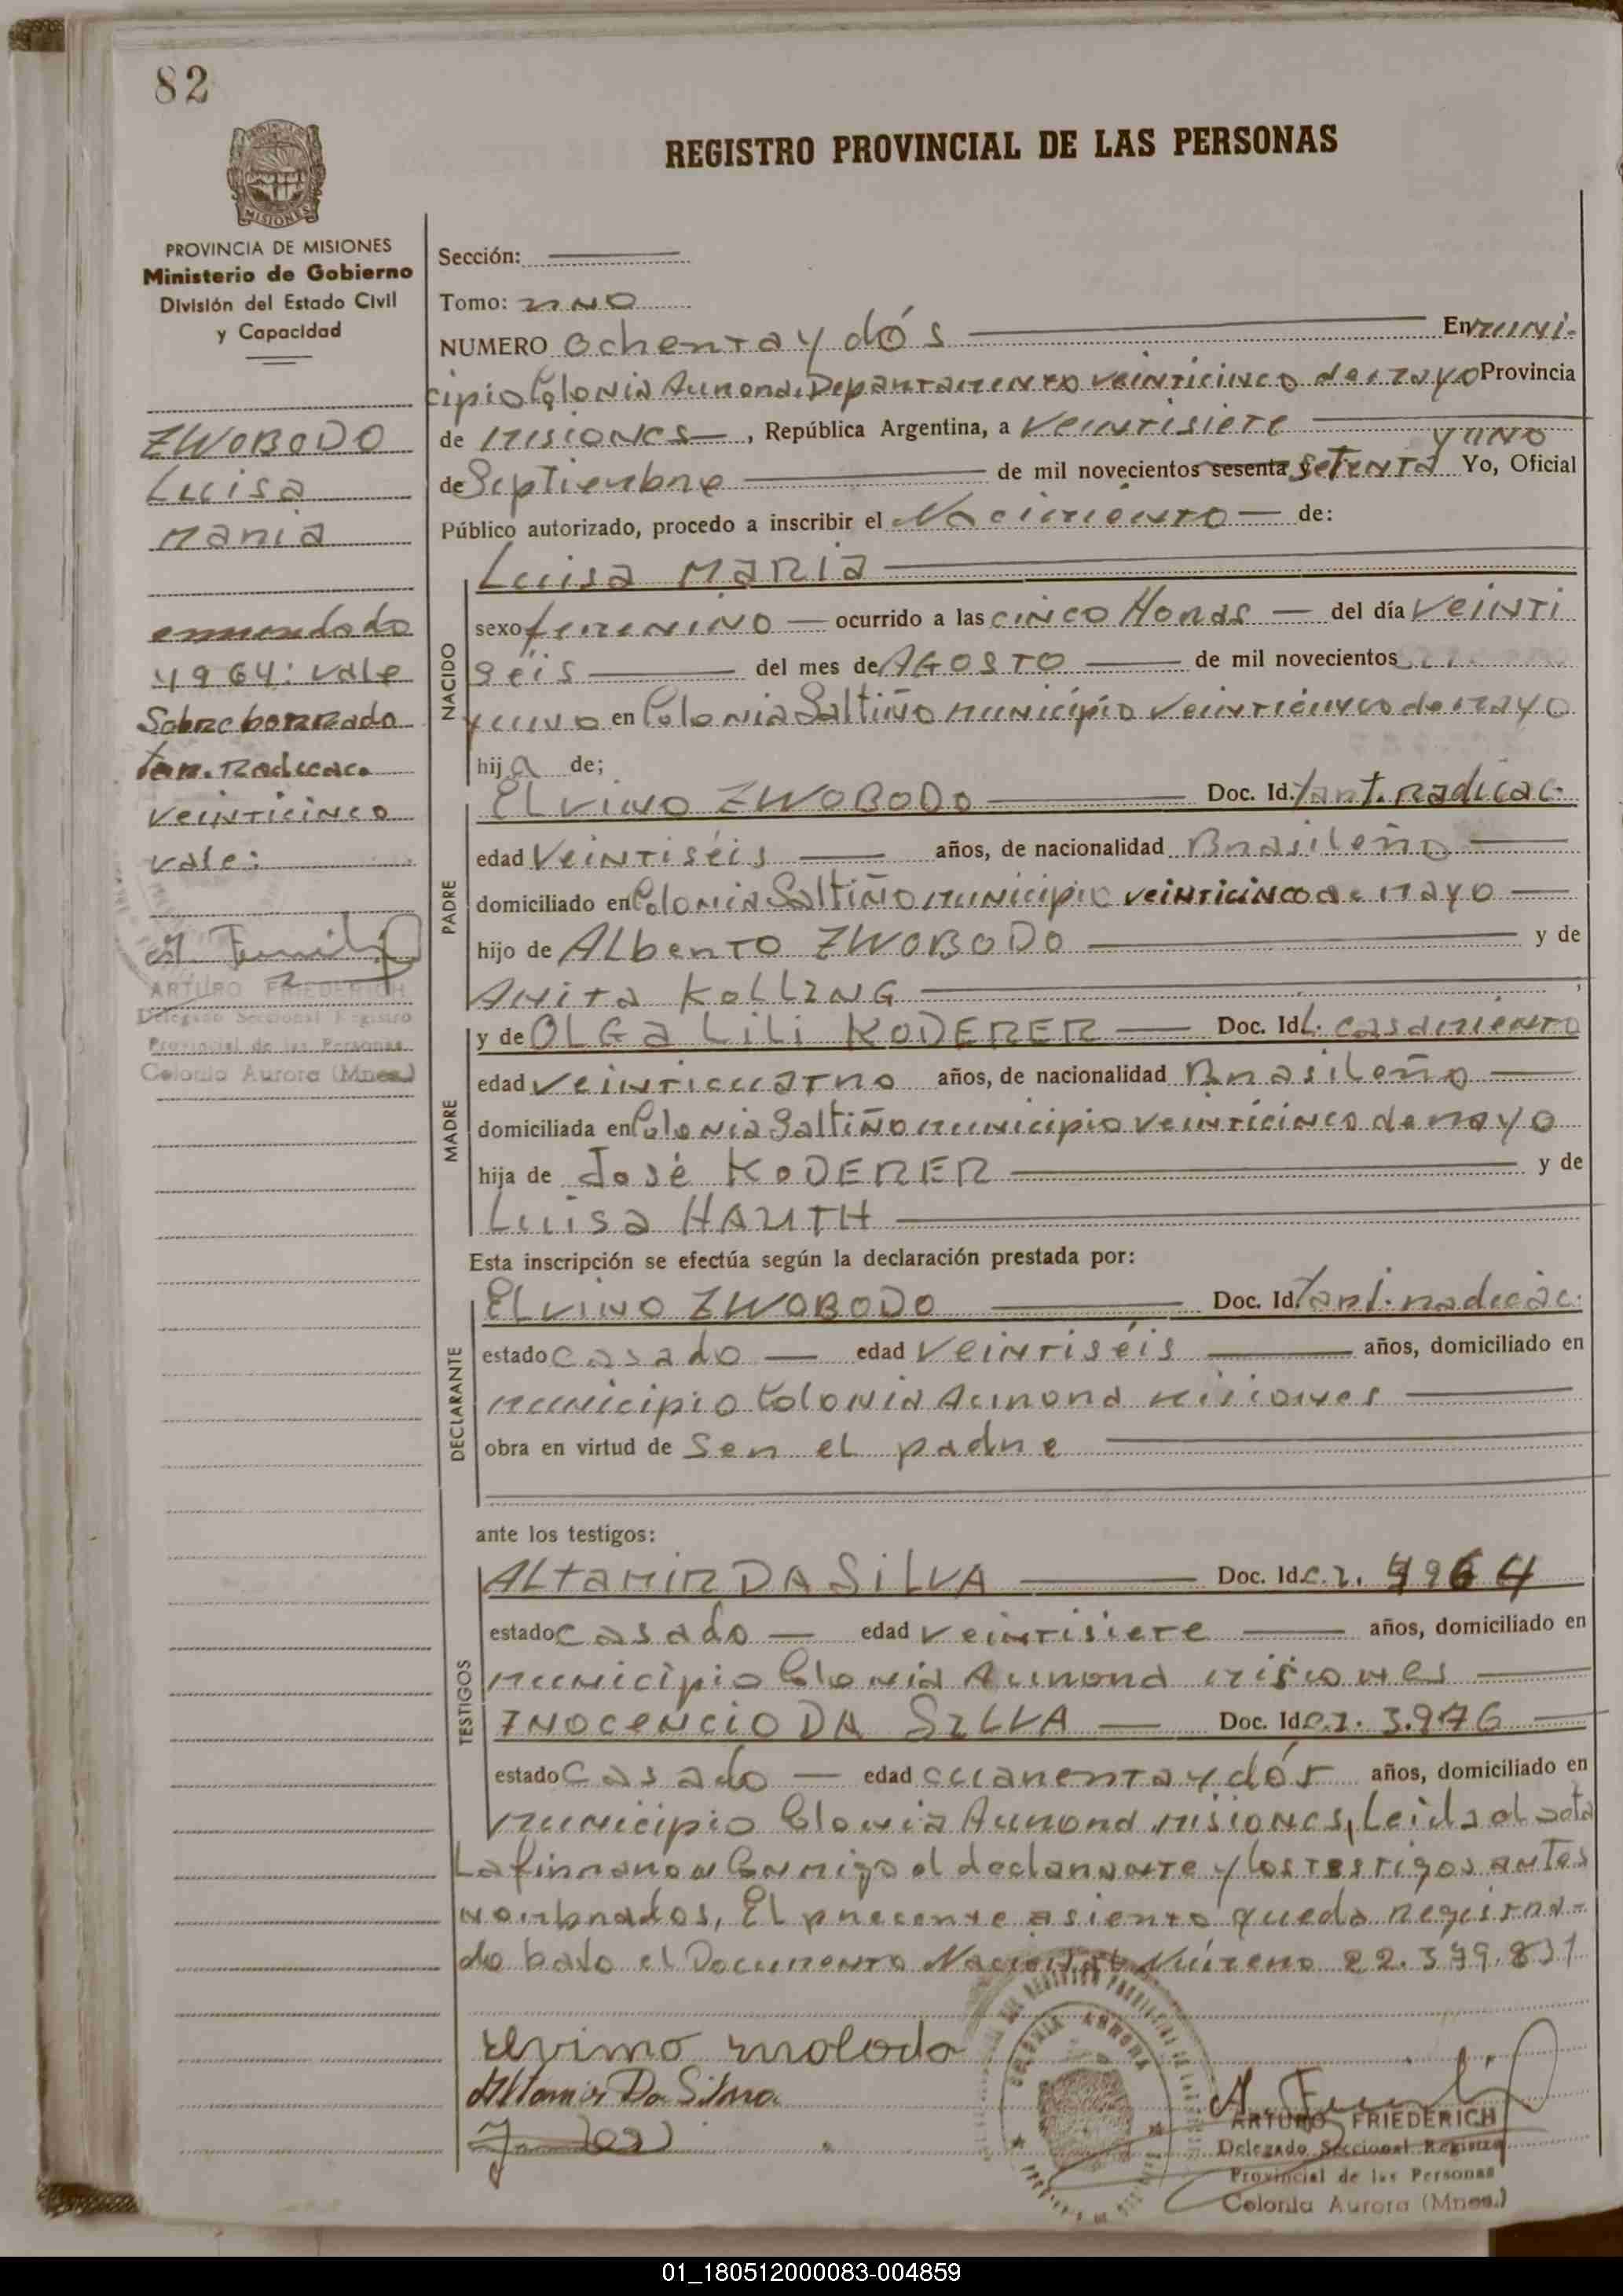 82
REGISTRO PROVINCIAL DE LAS PERSONAS
MISIONES
PROVINCIA DE MISIONES
Ministerio de Gobierno
División del Estado Civil
y Capacidad
ZWOBODO
Luisa
Maria
enmendado
4964: vale
Sobre borrado
Tar. Radicac.
veinticinco
vale:
ARTURO FRIEDERICH
Delegado Seccional Registro
Provincial de las Personas
Colonia Aurora (Mnes.)
Sección:
Tomo: UNO
NUMERO Ochenta y dós En Muni-
cipio Colonia Aurora, Departamento veinticinco de Mayo Provincia
de Misiones, República Argentina, a Veintisiete
y uno
de Septiembre de mil novecientos sesenta y Setenta Yo, Oficial
Público autorizado, procedo a inscribir el Nacimiento de:
NACIDO
Luisa Maria
sexo femenino ocurrido a las cinco Horas del día veinti
séis del mes de Agosto de mil novecientos
y uno en Colonia Saltiño municipio veinticinco de Mayo
hija de;
PADRE
Elvino ZWOBODO Doc. Id. Tarj. Radicac.
edad Veintiséis años, de nacionalidad Brasileño
domiciliado en Colonia Saltiño municipio veinticinco de Mayo
hijo de Alberto ZWOBODO y de
Anita KOLLING
MADRE
y de OLGA LiLi KODERER Doc. Id L. casamiento
edad veinticuatro años, de nacionalidad Brasileño
domiciliada en Colonia Saltiño municipio veinticinco de Mayo
hija de José KODERER y de
Luisa HAUTH
Esta inscripción se efectúa según la declaración prestada por:
DECLARANTE
Elvino ZWOBODO Doc. Id. Tarj. radicac.
estado casado edad Veintiséis años, domiciliado en
municipio Colonia Aurora Misiones
obra en virtud de Ser el padre
ante los testigos:
TESTIGOS
ALtaMiR DA SiLVA Doc. Id. C.I. 4964
estado casado edad veintisiete años, domiciliado en
municipio Colonia Aurora Misiones
INOCENCIO DA SILVA Doc. Id C.I. 3.976
estado Casado edad cuarenta y dós años, domiciliado en
municipio Colonia Aurora Misiones, Leida el acta
La firmaron Conmigo el declarante y los testigos antes
nombrados, El presente asiento queda registra-
do bajo el Documento Nacional Número 22.379.831
Altamir Da Silva
ARTURO FRIEDERICH
Delegado Seccional Registro
Provincial de las Personas
Colonia Aurora (Mnes.)
01_180512000083-004859